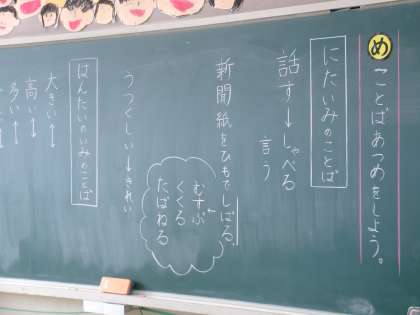 め ことばあつめをしよう。
にたいみのことば
話す→しゃべる
言う
新聞紙をひもでしばる。
むすぶ
くくる
たばねる
うつくしい→きれい
はんたいのいみのことば
大きい↔
高い↔
多い↔